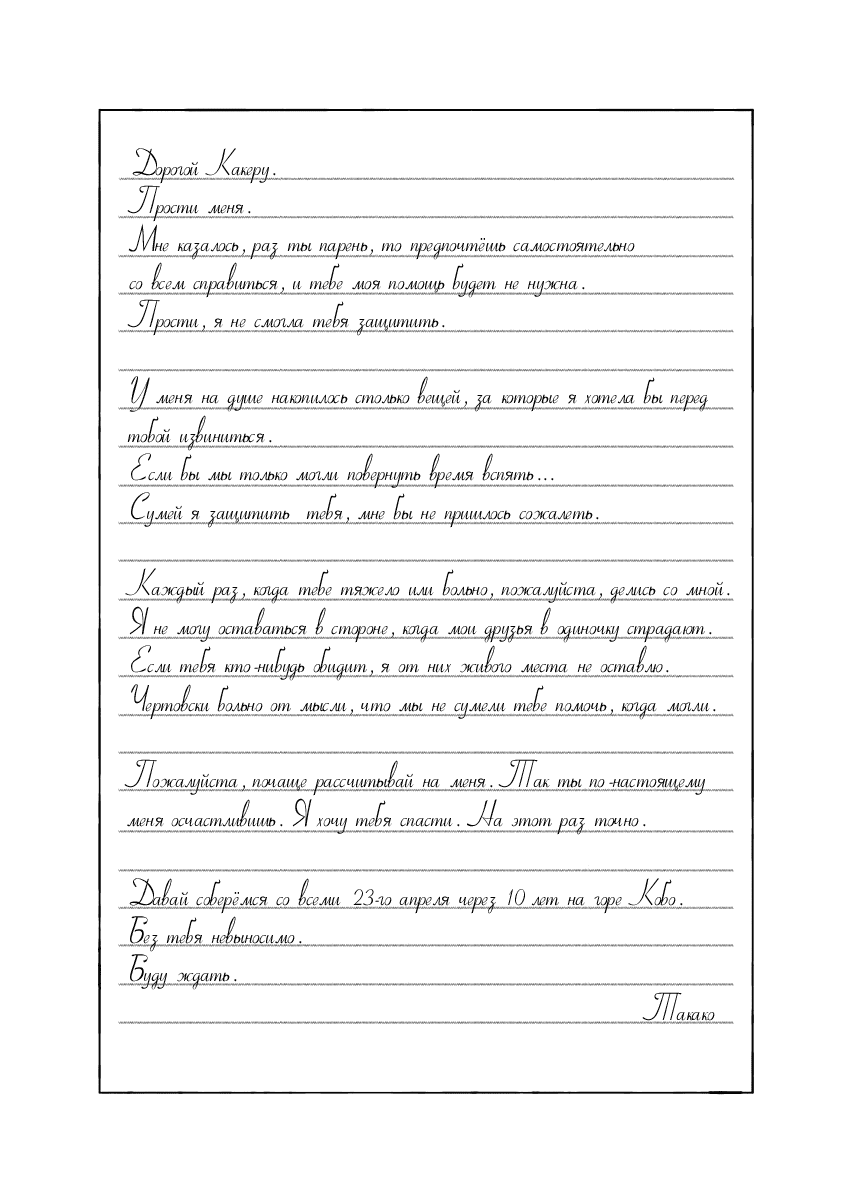 Дорогой Какеру.
Прости меня.
Мне казалось, раз ты парень, то предпочтёшь самостоятельно
со всем справиться, и тебе моя помощь будет не нужна.
Прости, я не смогла тебя защитить.
У меня на душе накопилось столько вещей, за которые я хотела бы перед
тобой извиниться.
Если бы мы только могли повернуть время вспять...
Сумей я защитить тебя, мне бы не пришлось сожалеть.
Каждый раз, когда тебе тяжело или больно, пожалуйста, делись со мной.
Я не могу оставаться в стороне, когда мои друзья в одиночку страдают.
Если тебя кто-нибудь обидит, я от них живого места не оставлю.
Чертовски больно от мысли, что мы не сумели тебе помочь, когда могли.
Пожалуйста, почаще рассчитывай на меня. Так ты по-настоящему
меня осчастливишь. Я хочу тебя спасти. На этот раз точно.
Давай соберёмся со всеми 23-го апреля через 10 лет на горе Кобо.
Без тебя невыносимо.
Буду ждать.
Такако